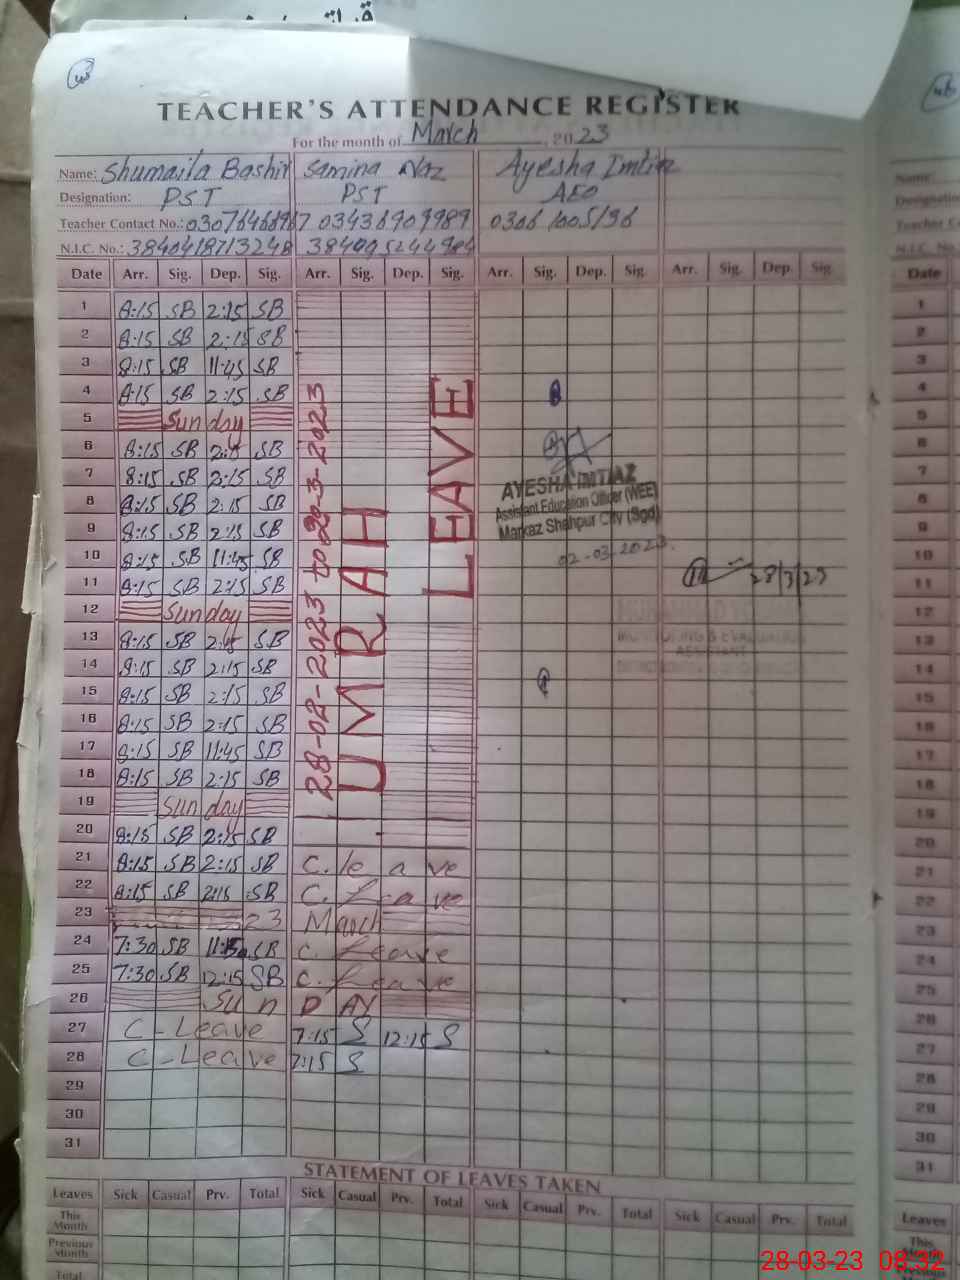 TEACHER'S ATTENDANCE REGISTER
For the month of March, 2023
Name: Shumaila Bashir Samina Naz Ayesha Imtiaz
Designation: PST PST AEO
Teacher Contact No.: 03436909989
N.I.C. No.: 3840418713248
Date Arr. Sig. Dep. Sig. Arr. Sig. Dep. Sig. Arr. Sig. Dep. Sig. Arr. Sig. Dep. Sig.
1 8:15 SB 2:15 SB
2 8:15 SB 2:15 SB
3 8:15 SB 11:45 SB
4 8:15 SB 2:15 SB
5 Sunday
6 8:15 SB 2:15 SB
7 8:15 SB 2:15 SB
8 8:15 SB 2:15 SB
9 8:15 SB 2:15 SB
10 8:15 SB 11:45 SB
11 8:15 SB 2:15 SB
12 Sunday
13 8:15 SB 2:15 SB
14 8:15 SB 2:15 SB
15 8:15 SB 2:15 SB
16 8:15 SB 2:15 SB
17 8:15 SB 11:45 SB
18 8:15 SB 2:15 SB
19 Sunday
20 8:15 SB 2:15 SB
21 8:15 SB 2:15 SB C. leave
22 8:15 SB 2:15 SB C. Leave
23 23 March
24 7:30 SB SB C. Leave
25 7:30 SB 12:15 SB C. Leave
26 SUN DAY
27 C-Leave 7:15 S 12:15 S
28 C-Leave 7:15 S
29
30
31
28-02-2023 to 20-3-2023
UMRAH
LEAVE
AYESHA IMTIAZ
Assistant Education Officer (WEE)
Markaz Shahpur City (Sgd)
02-03-2023.
28/3/23
MONITORING & EVALUATION
ASSISTANT
STATEMENT OF LEAVES TAKEN
Leaves Sick Casual Prv. Total Sick Casual Prv. Total Sick Casual Prv. Total Sick Casual Prv. Total
This Month
Previous Month
Total
Name:
Designation
Teacher C
N.I.C. No.
Date
1
2
3
4
5
6
7
8
9
10
11
12
13
14
15
16
17
18
19
20
21
22
23
24
25
26
27
28
29
30
31
Leaves
This
28-03-23 08:32